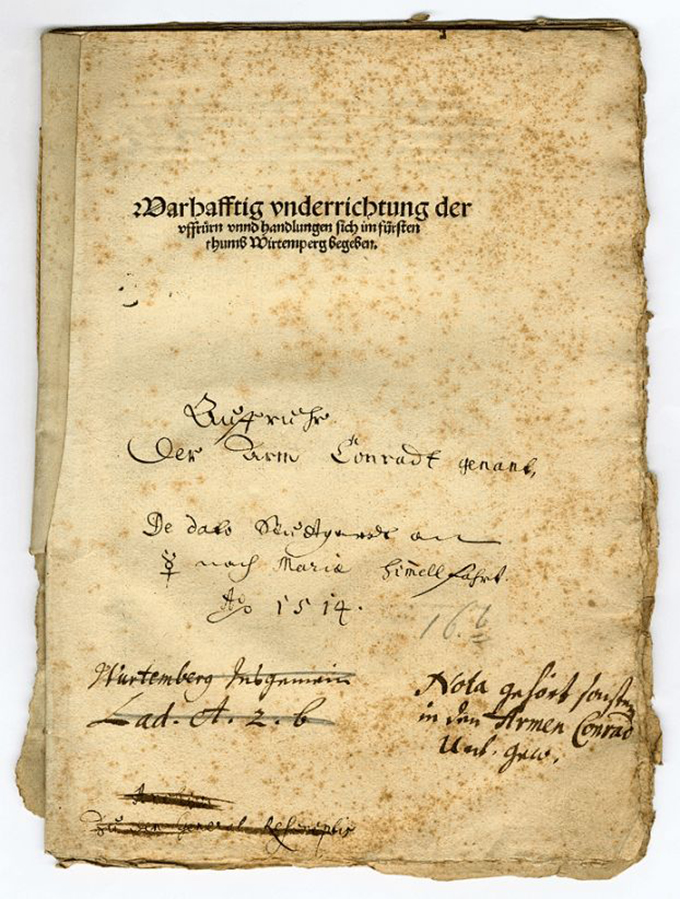 Warhafftig vnderrichtung der
vffrürn vnnd handlungen sich im fürsten
thumb Wirtemperg begeben.
Auffruhr
Der Arm Conradt genant,
De dato Stutgardt an
☿ nach Mariæ Himmellfahrt
Ao 1514.
16.
Würtemberg Insgemein
Lad. A. 2. b
Nota gehört sonsten
in den Armen Conrad
zu den General Rescriptis